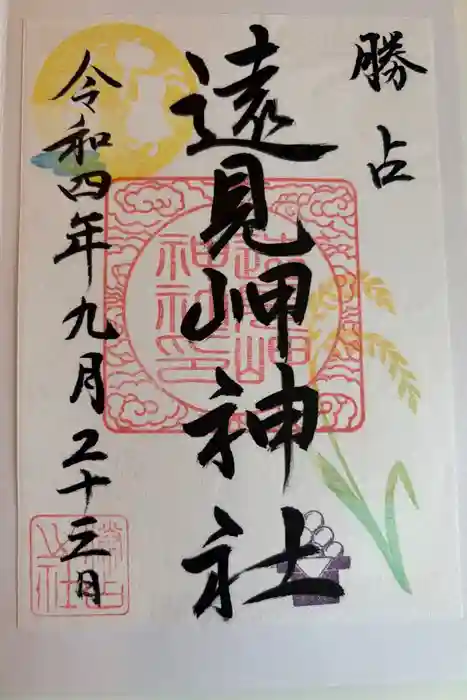 勝占
遠見岬神社
令和四年九月二十三日